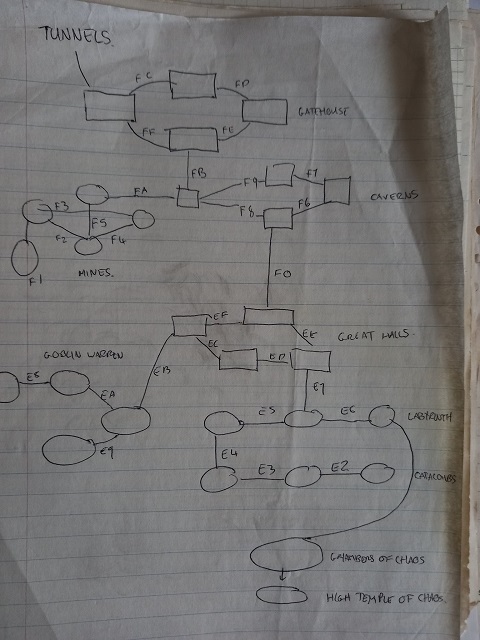 TUNNELS.
FC
FD
GATEHOUSE
FF
FE
FB
F9
F7
FA
F3
F8
F6
CAVERNS
F5
F2
F4
F1
MINES.
FO
EF
EE
GREAT HALLS.
GOBLIN WARREN
EC
ED
EB
E8
EA
E7
E9
E5
E6
LABYRINTH
E4
E3
E2
CATACOMBS
CHAMBERS OF CHAOS
HIGH TEMPLE OF CHAOS.